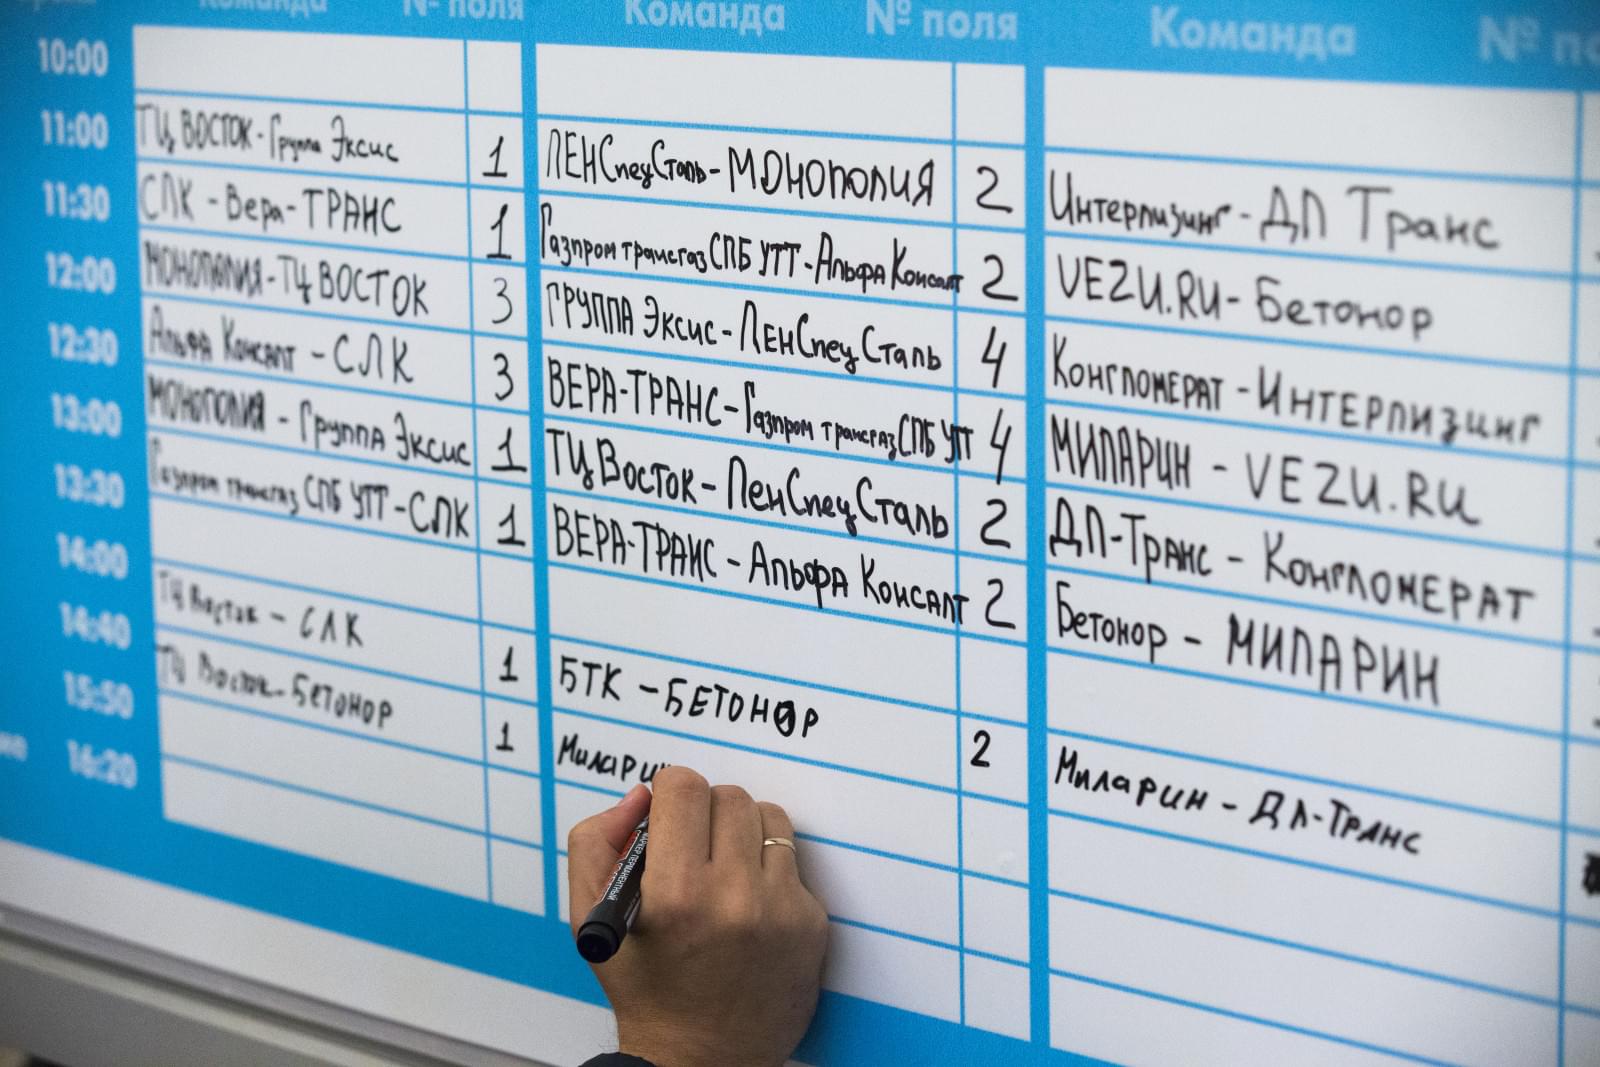 Команда № поля Команда № поля Команда №
10:00
11:00 ТЦ ВОСТОК - Группа Эксис 1 ЛЕНСпецСталь - МОНОПОЛИЯ 2 Интерлизинг - ДЛ Транс
11:30 СЛК - Вера-ТРАНС 1 Газпром трансгаз СПБ УТТ - Альфа Консалт 2 VEZU.RU - Бетонор
12:00 МОНОПОЛИЯ - ТЦ ВОСТОК 3 ГРУППА Эксис - ЛЕНСпецСталь 4 КОНГЛОМЕРАТ - ИНТЕРЛИЗИНГ
12:30 Альфа Консалт - СЛК 3 ВЕРА-ТРАНС - Газпром трансгаз СПБ УТТ 4 МИЛАРИН - VEZU.RU
13:00 МОНОПОЛИЯ - Группа Эксис 1 ТЦ Восток - ЛенСпецСталь 2 ДЛ-Транс - КОНГЛОМЕРАТ
13:30 Газпром трансгаз СПБ УТТ - СЛК 1 ВЕРА-ТРАНС - Альфа Консалт 2 Бетонор - МИЛАРИН
14:00
14:40 ТЦ Восток - СЛК 1 БТК - БЕТОНОР 2 Миларин - ДЛ-Транс
15:50 ТЦ Восток - БЕТОНОР 1 Миларин
16:20
МАРКЕР ПЕРМАНЕНТНЫЙ